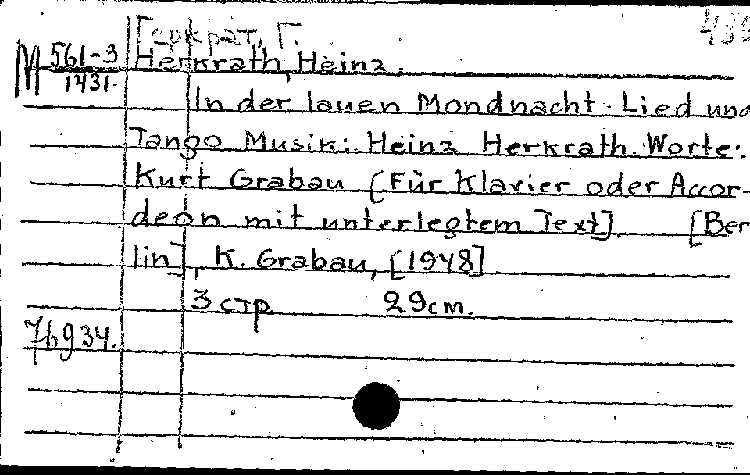 Геркрат, Г. 439
M 561-3
1431.
Herkrath, Heinz.
In der lauen Mondnacht. Lied und
Tango Musik: Heinz Herkrath. Worte:
Kurt Grabau [Für Klavier oder Accor-
deon mit unterlegtem Text] [Ber
lin], K. Grabau, [1948]
3 стр. 29 cm.
76934.